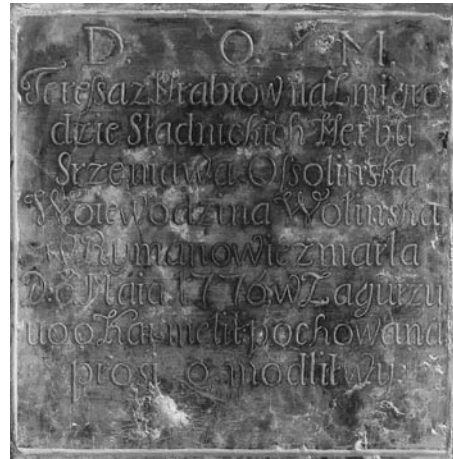 D. O. M.
Teressa z Hrabiow na Lmigro
dzie Stadnickich Herbu
Srzeniawa Ossolinska
Woiewodzina Wolinska
w Rymanowie zmarla
D. 6 Maia 1776 w Zagurzu
u oo Karmelit: pochowana
prosi o modlitwy: